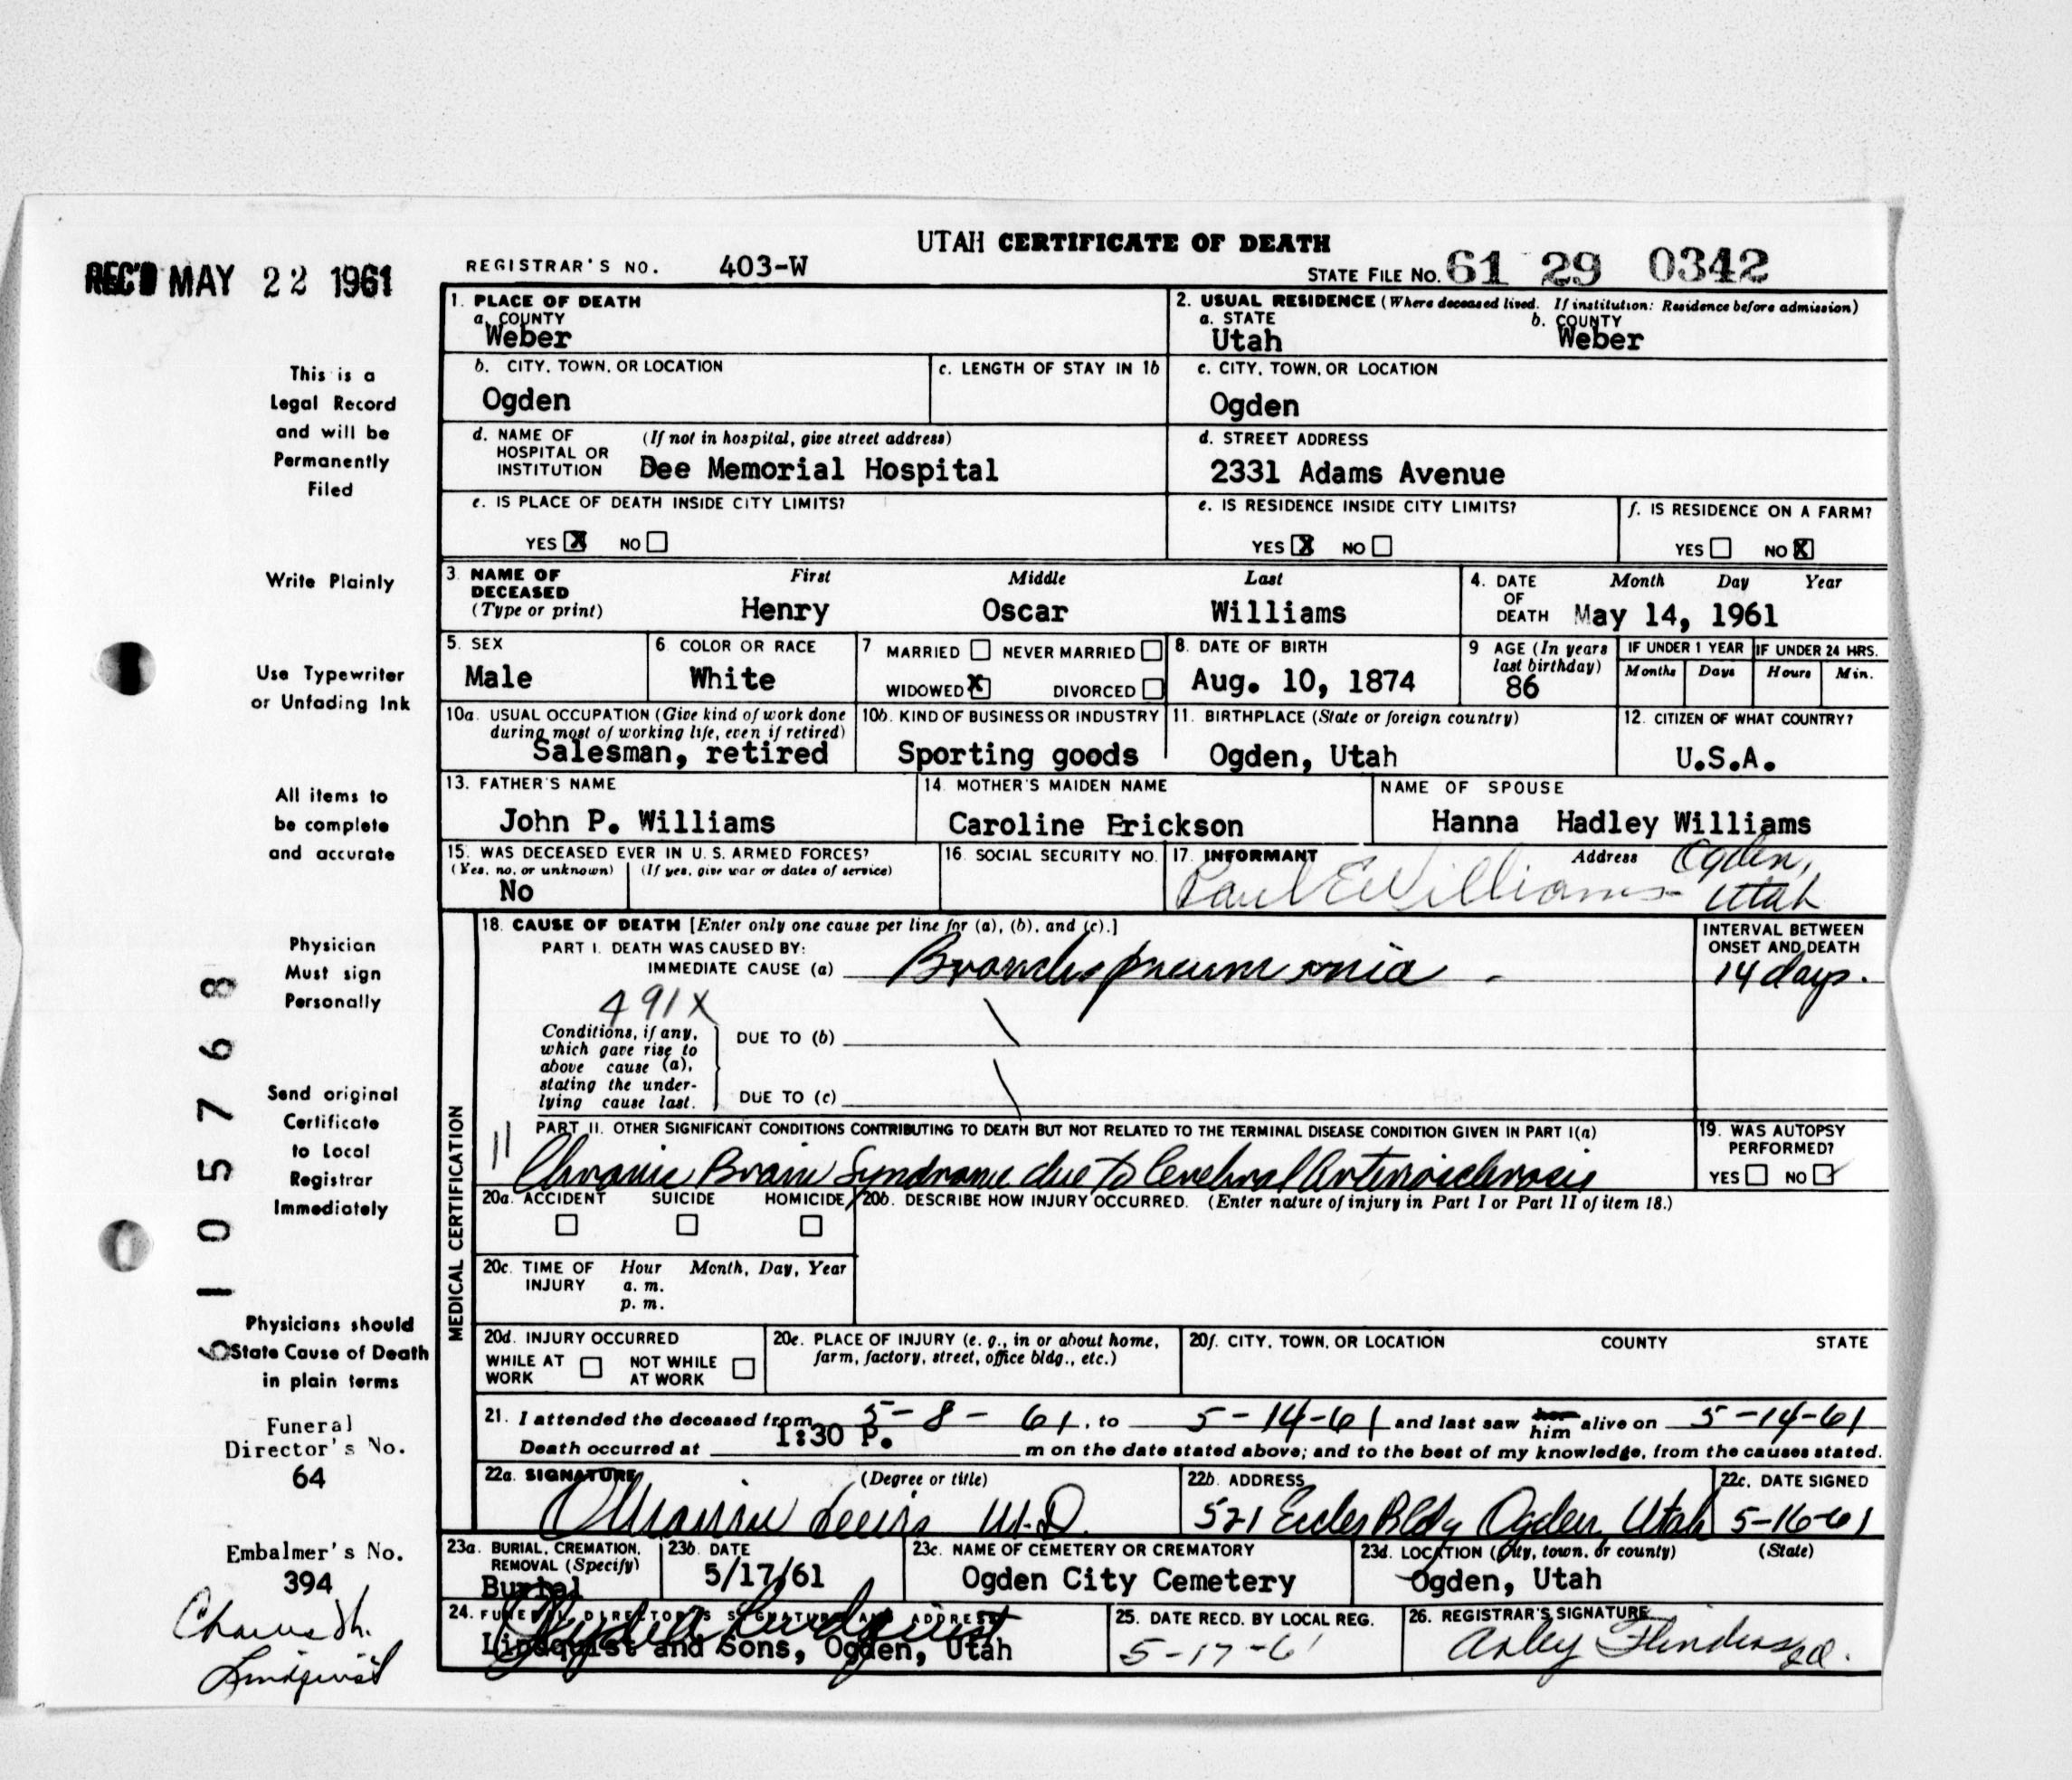 UTAH CERTIFICATE OF DEATH
REC'D MAY 22 1961
REGISTRAR'S NO. 403-W
STATE FILE No. 61 29 0342
1. PLACE OF DEATH
a. COUNTY
Weber
2. USUAL RESIDENCE (Where deceased lived. If institution: Residence before admission)
a. STATE b. COUNTY
Utah Weber
b. CITY, TOWN, OR LOCATION
Ogden
c. LENGTH OF STAY IN 1b
c. CITY, TOWN, OR LOCATION
Ogden
d. NAME OF HOSPITAL OR INSTITUTION (If not in hospital, give street address)
Dee Memorial Hospital
d. STREET ADDRESS
2331 Adams Avenue
e. IS PLACE OF DEATH INSIDE CITY LIMITS?
YES X NO
e. IS RESIDENCE INSIDE CITY LIMITS?
YES X NO
f. IS RESIDENCE ON A FARM?
YES NO X
3. NAME OF DECEASED (Type or print)
First Middle Last
Henry Oscar Williams
4. DATE OF DEATH Month Day Year
May 14, 1961
5. SEX
Male
6. COLOR OR RACE
White
7 MARRIED NEVER MARRIED
WIDOWED X DIVORCED
8. DATE OF BIRTH
Aug. 10, 1874
9 AGE (In years last birthday)
86
IF UNDER 1 YEAR IF UNDER 24 HRS.
Months Days Hours Min.
10a. USUAL OCCUPATION (Give kind of work done during most of working life, even if retired)
Salesman, retired
10b. KIND OF BUSINESS OR INDUSTRY
Sporting goods
11. BIRTHPLACE (State or foreign country)
Ogden, Utah
12. CITIZEN OF WHAT COUNTRY?
U.S.A.
13. FATHER'S NAME
John P. Williams
14. MOTHER'S MAIDEN NAME
Caroline Erickson
NAME OF SPOUSE
Hanna Hadley Williams
15. WAS DECEASED EVER IN U.S. ARMED FORCES?
(Yes, no, or unknown) (If yes, give war or dates of service)
No
16. SOCIAL SECURITY NO.
17. INFORMANT Address
Paul E Williams Ogden, Utah
MEDICAL CERTIFICATION
18. CAUSE OF DEATH [Enter only one cause per line for (a), (b), and (c).]
PART I. DEATH WAS CAUSED BY:
IMMEDIATE CAUSE (a) Bronchopneumonia
INTERVAL BETWEEN ONSET AND DEATH
14 days.
491X
Conditions, if any, which gave rise to above cause (a), stating the underlying cause last.
DUE TO (b)
DUE TO (c)
PART II. OTHER SIGNIFICANT CONDITIONS CONTRIBUTING TO DEATH BUT NOT RELATED TO THE TERMINAL DISEASE CONDITION GIVEN IN PART I(a)
Chronic Brain Syndrome due to Cerebral Arteriosclerosis
19. WAS AUTOPSY PERFORMED?
YES NO
20a. ACCIDENT SUICIDE HOMICIDE
20b. DESCRIBE HOW INJURY OCCURRED. (Enter nature of injury in Part I or Part II of item 18.)
20c. TIME OF INJURY Hour Month, Day, Year
a. m.
p. m.
20d. INJURY OCCURRED
WHILE AT WORK NOT WHILE AT WORK
20e. PLACE OF INJURY (e. g., in or about home, farm, factory, street, office bldg., etc.)
20f. CITY, TOWN, OR LOCATION COUNTY STATE
21. I attended the deceased from 5-8-61, to 5-14-61 and last saw her him alive on 5-14-61
Death occurred at 1:30 P. m on the date stated above; and to the best of my knowledge, from the causes stated.
22a. SIGNATURE (Degree or title)
Lewis M.D.
22b. ADDRESS
521 Eccles Bldg Ogden, Utah
22c. DATE SIGNED
5-16-61
23a. BURIAL, CREMATION, REMOVAL (Specify)
Burial
23b. DATE
5/17/61
23c. NAME OF CEMETERY OR CREMATORY
Ogden City Cemetery
23d. LOCATION (City, town, or county) (State)
Ogden, Utah
24. FUNERAL DIRECTOR'S SIGNATURE AND ADDRESS
Lindquist and Sons, Ogden, Utah
25. DATE RECD. BY LOCAL REG.
5-17-6
26. REGISTRAR'S SIGNATURE
This is a
Legal Record
and will be
Permanently
Filed
Write Plainly
Use Typewriter
or Unfading Ink
All items to
be complete
and accurate
Physician
Must sign
Personally
Send original
Certificate
to Local
Registrar
Immediately
Physicians should
State Cause of Death
in plain terms
Funeral
Director's No.
64
Embalmer's No.
394
Lindquist